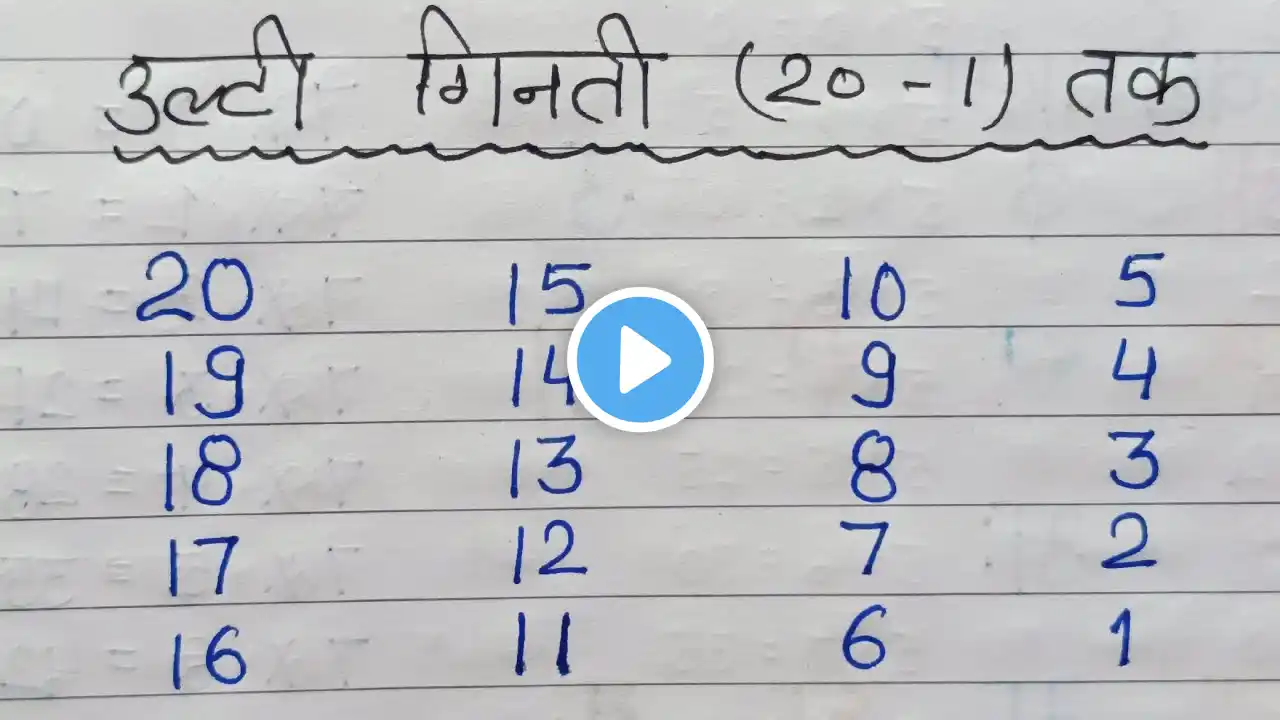 उल्टी गिनती (20 - 1) तक
20 15 10 5
19 14 9 4
18 13 8 3
17 12 7 2
16 11 6 1